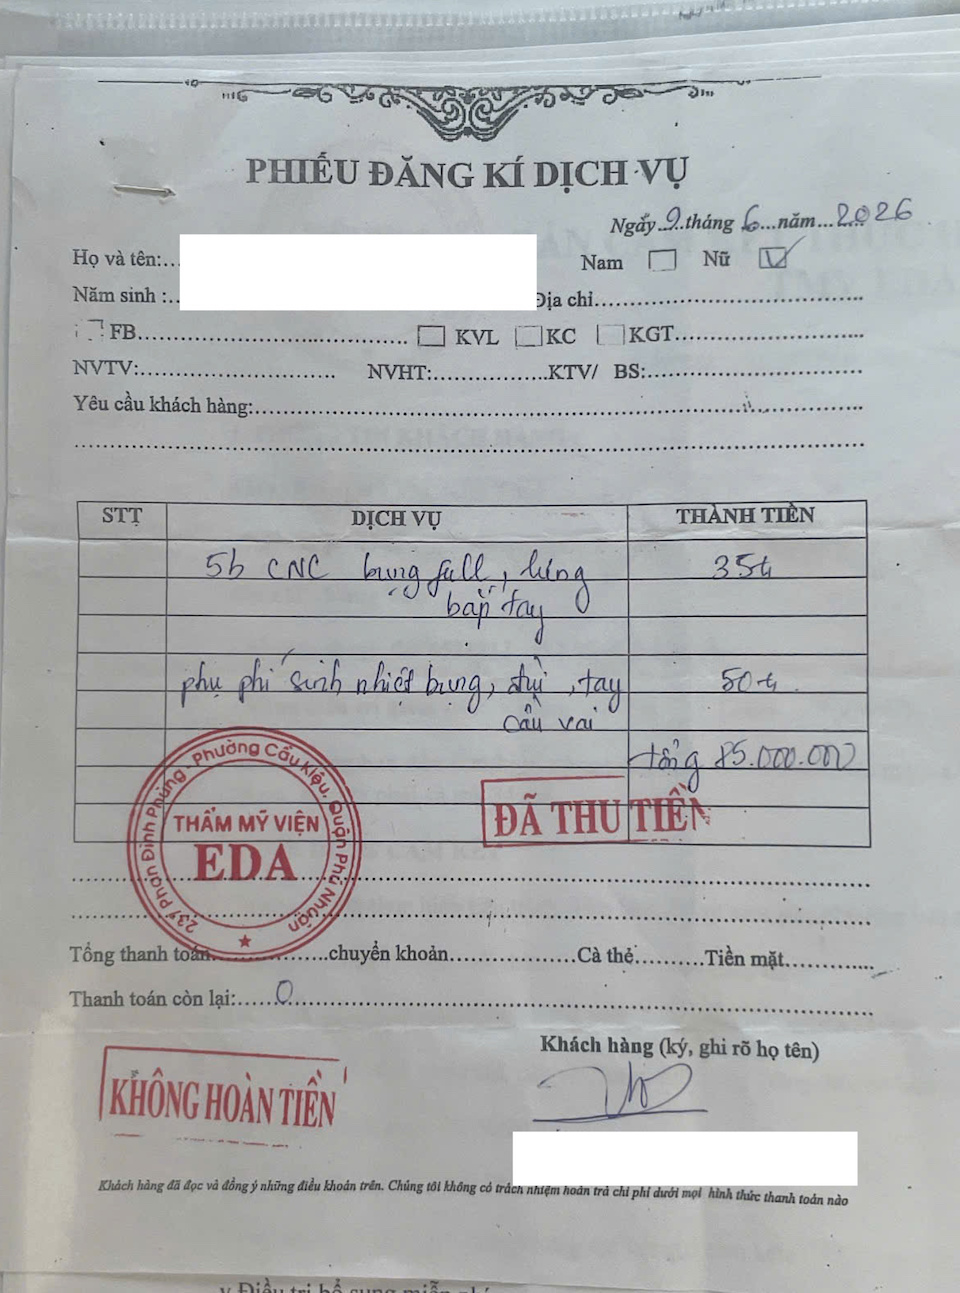 PHIẾU ĐĂNG KÍ DỊCH VỤ
Ngày 9 tháng 6 năm 2026
Họ và tên:
Nam Nữ
Năm sinh :
Địa chỉ
FB KVL KC KGT
NVTV: NVHT: KTV/ BS:
Yêu cầu khách hàng:
STT DỊCH VỤ THÀNH TIỀN
5b CNC bụng full, lưng 35tr
bắp tay
phụ phí sinh nhiệt bụng, đùi, tay 50tr
cầu vai
tổng 85.000.000
237 Phan Đình Phùng - Phường Cầu Kiệu, Quận Phú Nhuận
THẨM MỸ VIỆN
EDA
ĐÃ THU TIỀN
Tổng thanh toán chuyển khoản Cà thẻ Tiền mặt
Thanh toán còn lại: 0
Khách hàng (ký, ghi rõ họ tên)
KHÔNG HOÀN TIỀN
Khách hàng đã đọc và đồng ý những điều khoản trên. Chúng tôi không có trách nhiệm hoàn trả chi phí dưới mọi hình thức thanh toán nào